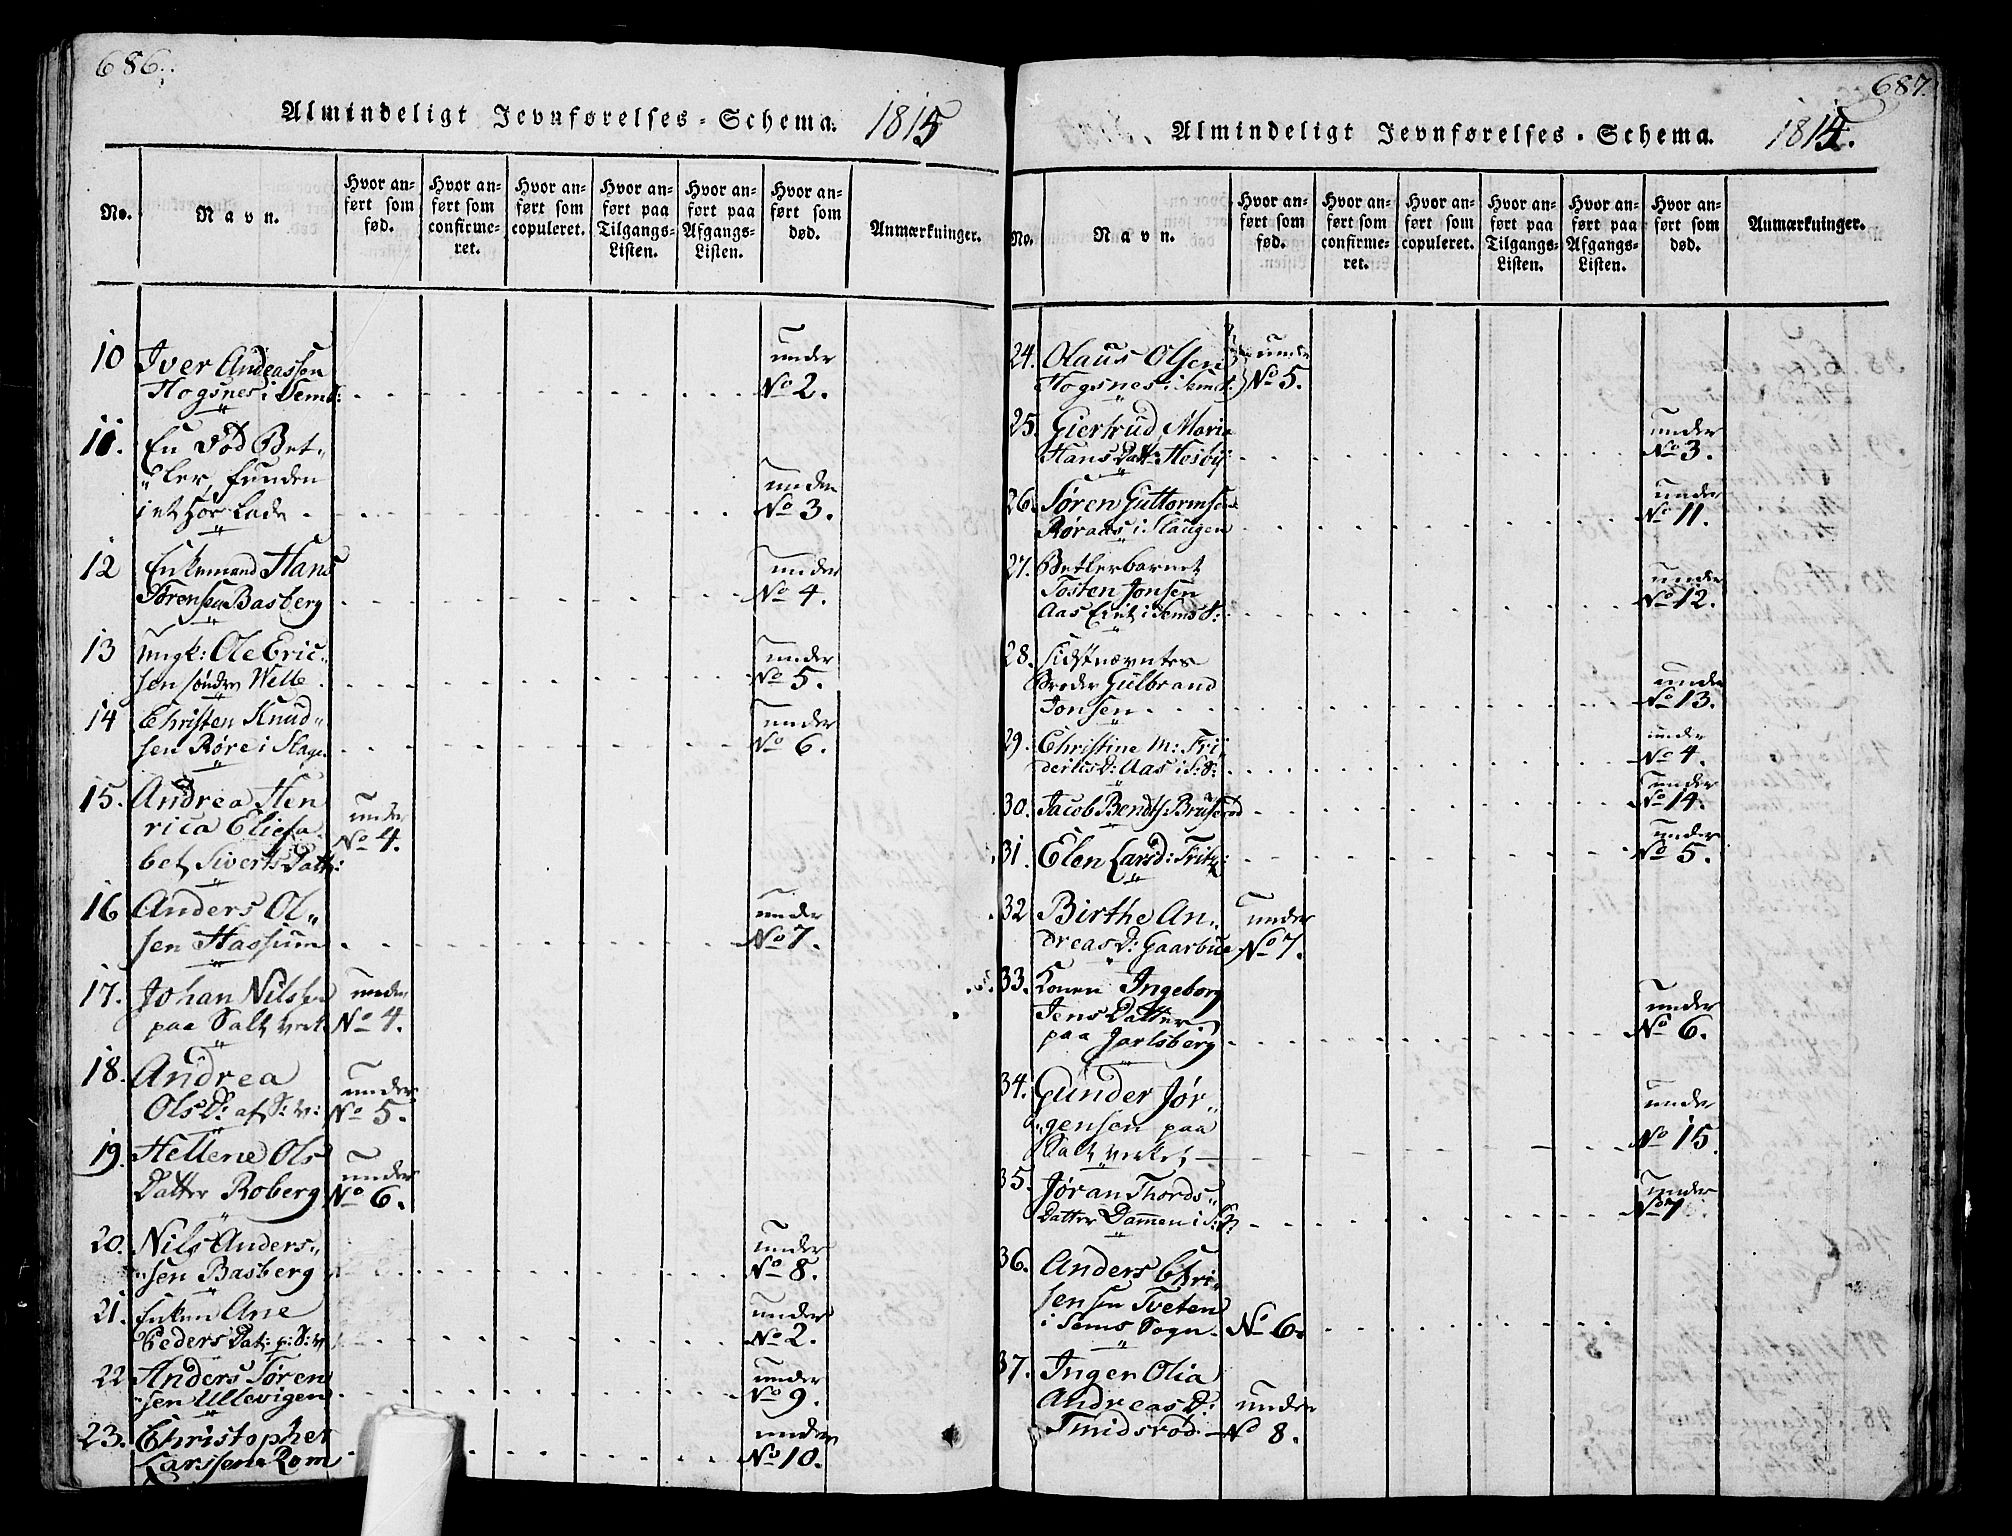 686.
Almindeligt Jevnførelses-Schema. 1815
No.
Navn.
Hvor anført som født.
Hvor anført som confirmeret.
Hvor anført som copuleret.
Hvor anført paa Tilgangs-Listen.
Hvor anført paa Afgangs-Listen.
Hvor anført som død.
Anmærkninger.
10 Iver Andeassen
Hogsnes i Sem: under No 2.
11. En død Bet-
ler, funden
i et Hør Lade under No 3.
12 Enkemand Hans
Sørensen Basberg under No 4.
13 Ungk: Ole Eric-
sen søndre Welle under No 5.
14 Christen Knud-
sen Røre i Slage. under No 6.
15. Andrea Hen
rica Eliesa
bet Siverts Datt: under No 4.
16 Anders Ol-
sen Hassum under No 7.
17. Johan Nilsen
paa Salt verk under No 4.
18. Andrea
Ols D: af S: v: under No 5.
19. Hellene Ols
Datter Roberg under No 6.
20. Nils Anders-
sen Basberg under No 8.
21. Enken Ane
Peders Dat: p: S: v: under No 2.
22 Anders Søren
sen Ullevigen under No 9.
23. Christopher
Larssen Rom under No 10.
687.
Almindeligt Jevnførelses-Schema. 1815.
No.
Navn.
Hvor anført som fød.
Hvor anført som confirmeret.
Hvor anført som copuleret.
Hvor anført paa Tilgangs-Listen.
Hvor anført paa Afgangs-Listen.
Hvor anført som død.
Anmærkninger.
24. Olaus Olsen
Hogsnes i Sem under No 5.
25. Giertrud Maria
Hans Datt: Hesby under No 3.
26. Søren Guttormsen
Røraas i Slaugen under No 11.
27. Betlerbarnet
Tosten Jonsen
Aas Eint i Sems S: under No 12.
28. Sidstnævntes
Broder Gulbrand
Jonsen under No 13.
29. Christine M: Fri
derics D: Aas i S: S: under No 4.
30. Jacob Bendts: Bruserød under No 14.
31. Elen Lars D: Fritz: under No 5.
32 Birthe An-
dreas D: Gaarbue under No 7.
33. Konen Ingeborg
Jens Datter
paa Jarlsberg under No 6.
34. Gunder Jør-
gensen paa
Salt verket under No 15.
35. Jøran Thords-
Datter Dammen i S: S: under No 7
36. Anders Chri-
stensen Tveten
i Sems Sogn. No 6.
37. Inger Olia
Andreas D:
Smidsrød under No 8.